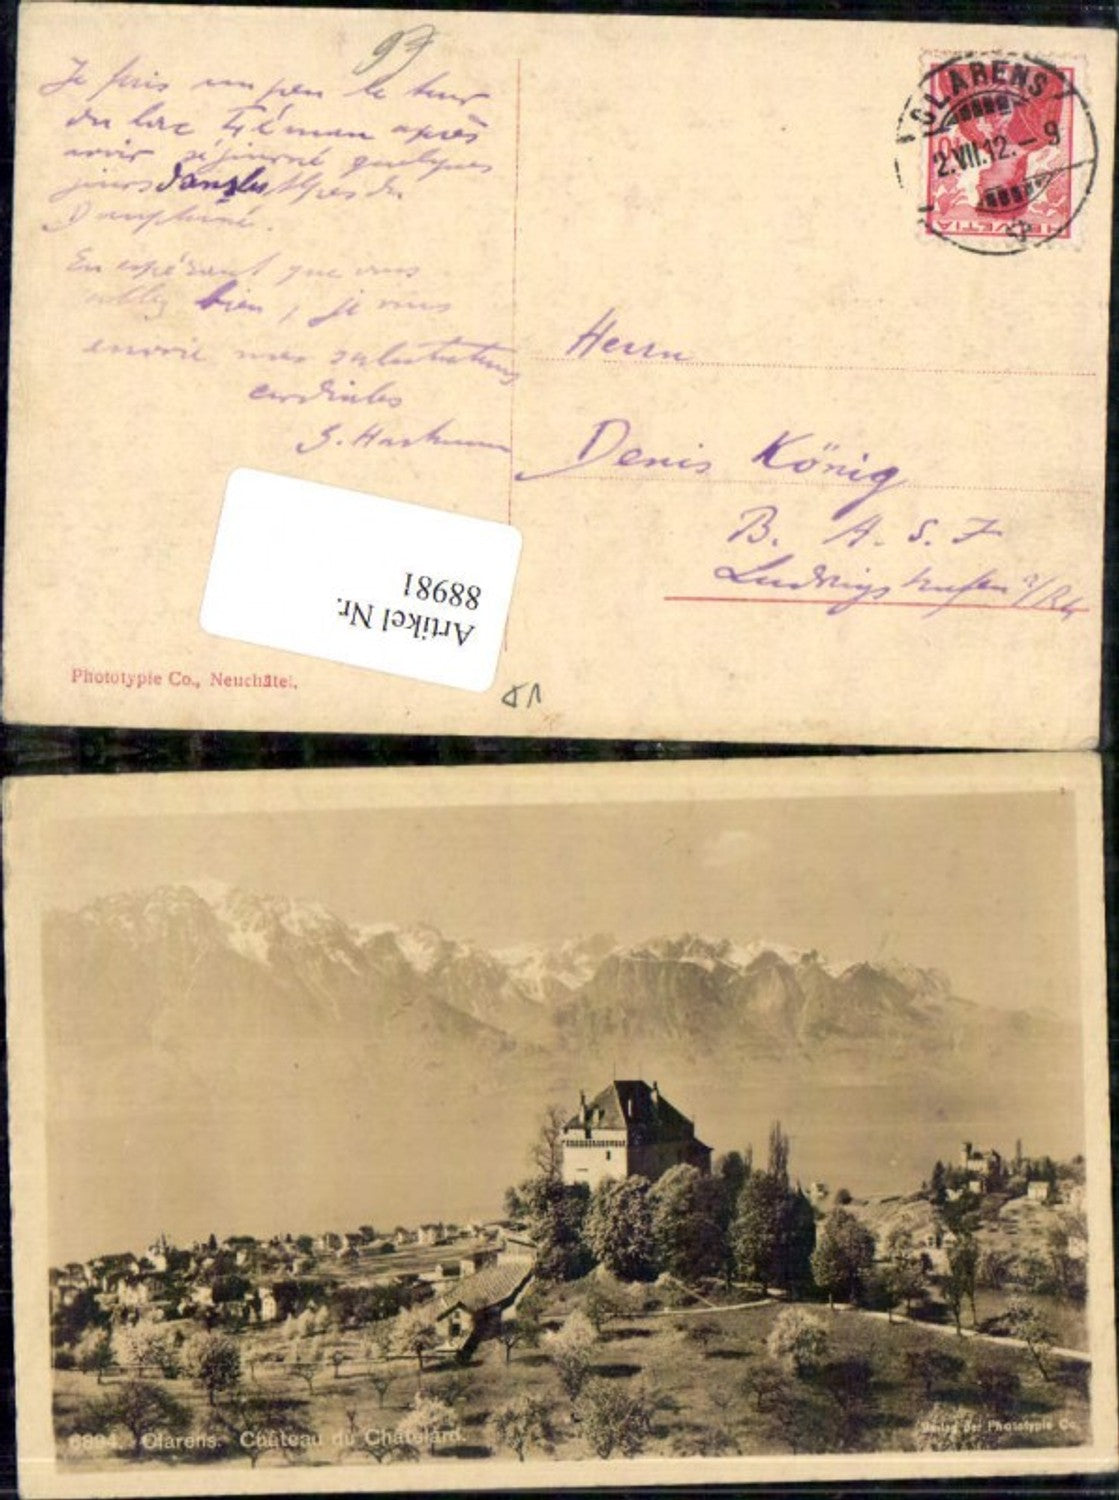 97
Je fais un peu le tour
du lac Léman après
avoir séjourné quelques
jours dans les Alpes du
Dauphiné.
En espérant que vous
alliez bien, je vous
envoie mes salutations
cordiales
CLARENS
2.VII.12.-9
HELVETIA
10
Herrn
Denis König
B. A. S. F
Ludwigshafen a/Rh
Artikel Nr.
88981
Phototypie Co., Neuchâtel.
6894. Clarens. Château du Châtelard.
Verlag der Phototypie Co.